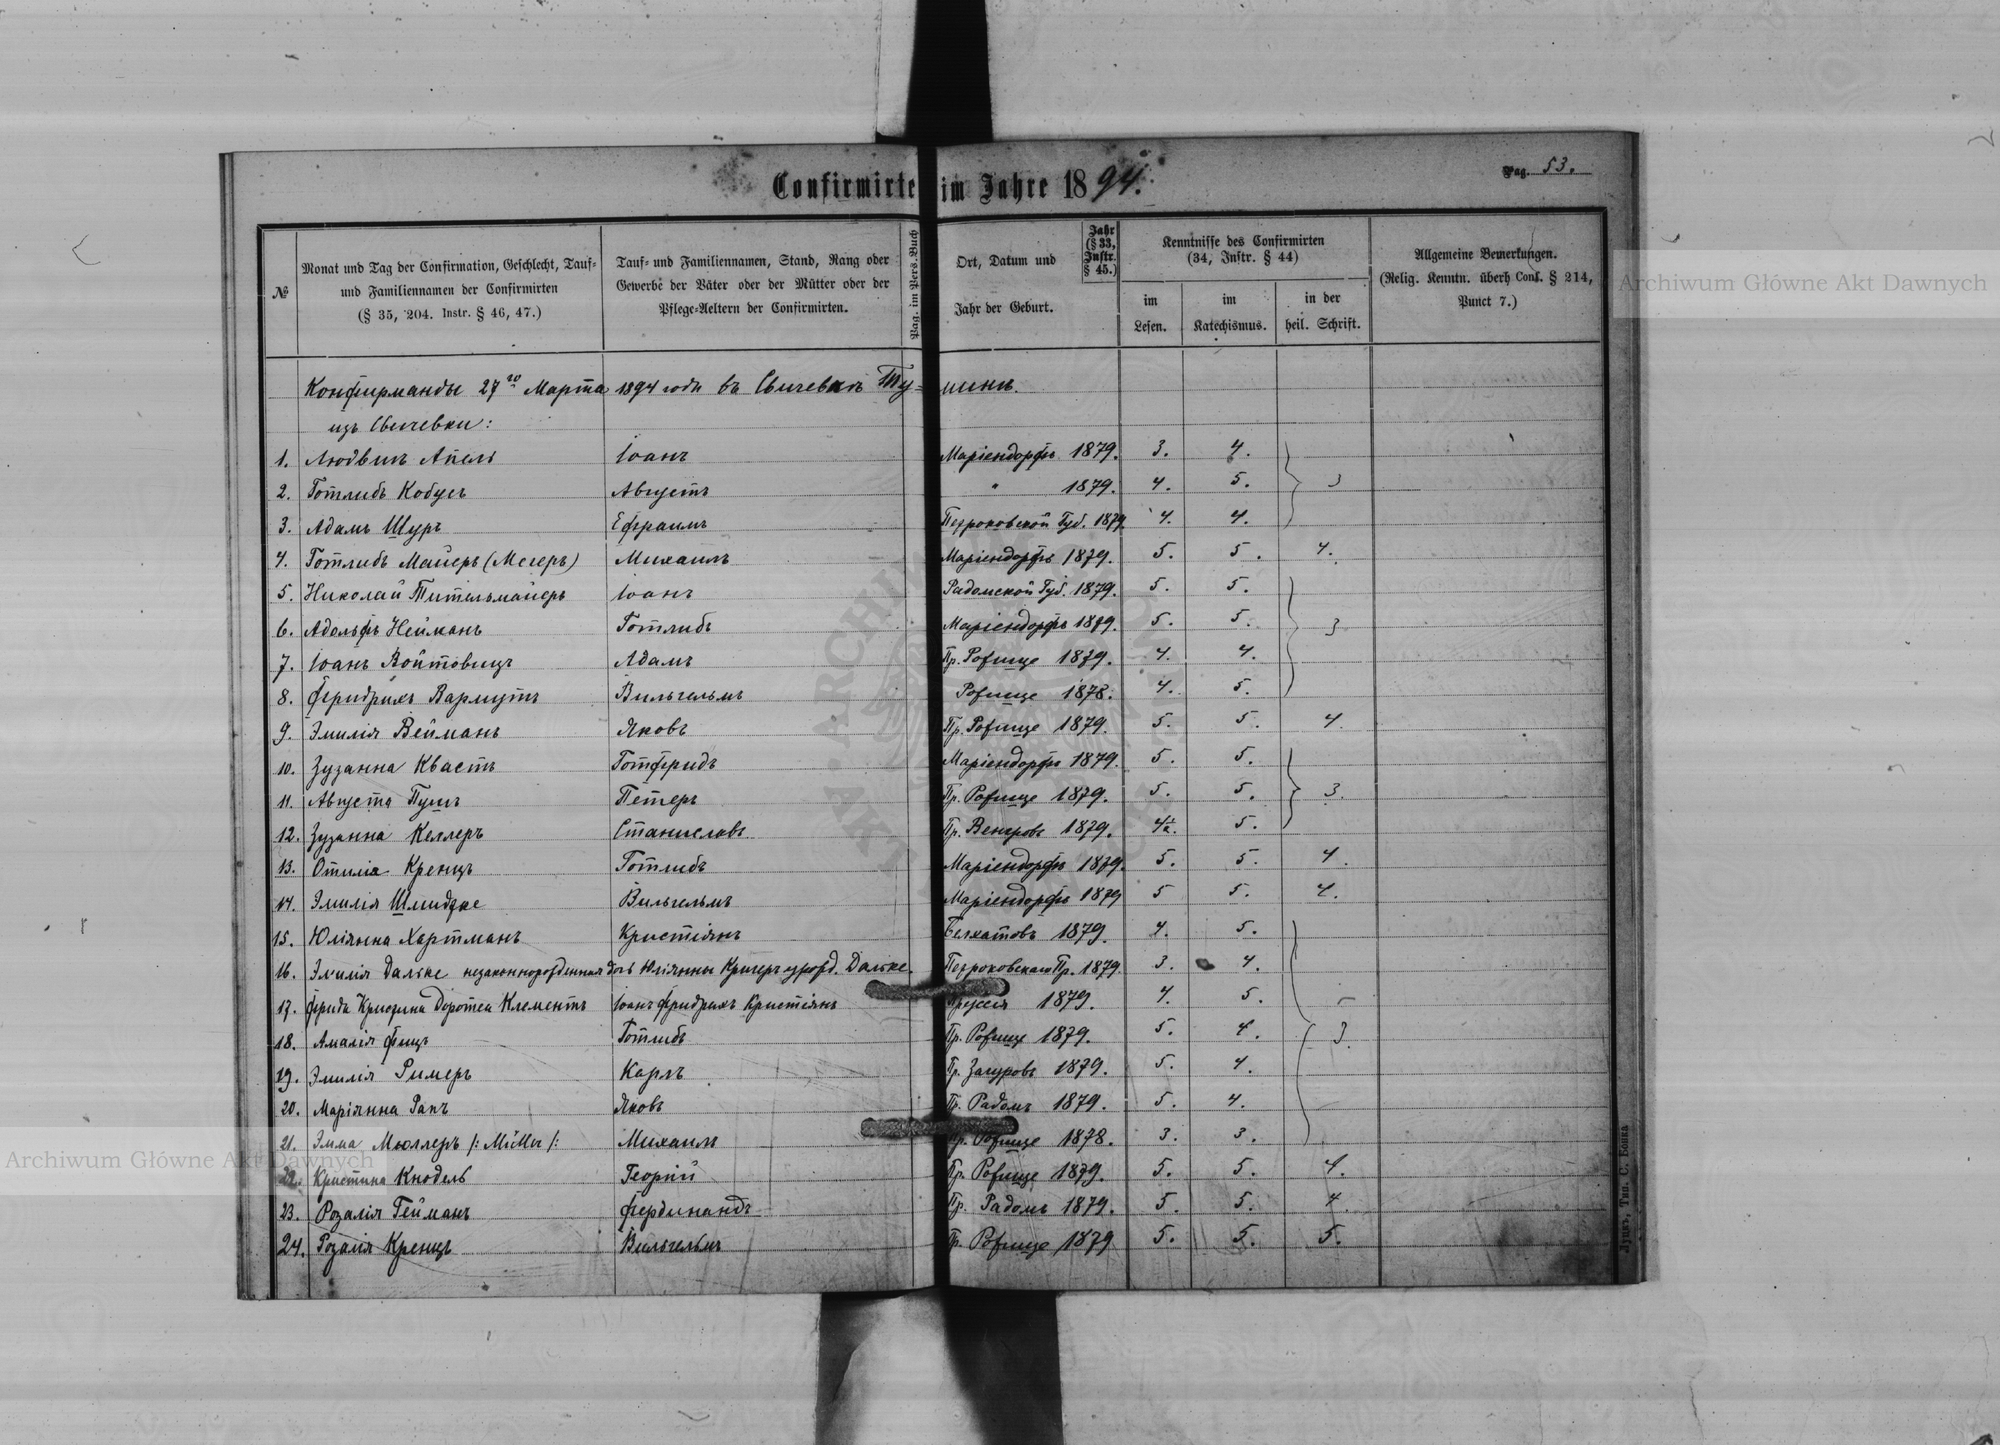 Confirmirte im Jahre 1894.
Pag. 53.
№
Monat und Tag der Confirmation, Geschlecht, Tauf- und Familiennamen der Confirmirten (§ 35, 204. Instr. § 46, 47.)
Tauf- und Familiennamen, Stand, Rang oder Gewerbe der Väter oder der Mütter oder der Pflege-Aeltern der Confirmirten.
Pag. im Pers.-Buch
Ort, Datum und Jahr der Geburt.
Jahr (§ 33, Instr. § 45.)
Kenntnisse des Confirmirten (34, Instr. § 44)
im Lesen.
im Katechismus.
in der heil. Schrift.
Allgemeine Bemerkungen. (Relig. Kenntn. überh. Conf. § 214, Punct 7.)
Конфирманды 27го Марта 1894 года въ Свичевкѣ
изъ Свичевки:
1. Людвигъ Апель Іоанъ Маріендорфъ 1879. 3. 4.
2. Готлибъ Кобусъ Августъ " 1879. 4. 5. 3
3. Адамъ Шуръ Ефраимъ Петроковской Губ. 1879. 4. 4.
4. Готлибъ Майеръ (Мегеръ) Михаилъ Маріендорфъ 1879. 5. 5. 4.
5. Николай Тительмайеръ Іоанъ Радомской Губ. 1879. 5. 5.
6. Адольфъ Нейманъ Готлибъ Маріендорфъ 1879. 5. 5. 3
7. Іоанъ Войтовицъ Адамъ Пр. Рожище 1879. 4. 4.
8. Фридрихъ Вармутъ Вильгельмъ Рожище 1878. 4. 5.
9. Эмилія Вейманъ Яковъ Пр. Рожище 1879. 5. 5. 4
10. Зузанна Квастъ Готфридъ Маріендорфъ 1879. 5. 5.
11. Августа Пушъ Петеръ Пр. Рожище 1879. 5. 5. 3.
12. Зузанна Келлеръ Станиславъ Пр. Венгровъ 1879. 4½. 5.
13. Отилія Кренцъ Готлибъ Маріендорфъ 1879. 5. 5. 4.
14. Эмилія Шмидтке Вильгельмъ Маріендорфъ 1879 5 5. 4.
15. Юліянна Хартманъ Кристіянъ Белхатовъ 1879. 4. 5.
16. Эмилія Дальке незаконнорожденная дочь Юліянны Кригеръ урожд. Дальке. Петроковская Пр. 1879. 3. 4.
17. Фрида Доротея Клементъ Іоанъ Фридрихъ Кристіянъ Пруссія 1879. 4. 5.
18. Амалія Фицъ Готлибъ Пр. Рожище 1879. 5. 4. 3.
19. Эмилія Римеръ Карлъ Пр. Загуровъ 1879. 5. 4.
20. Маріянна Рапъ Яковъ Пр. Радомъ 1879. 5. 4.
21. Эмма Мюллеръ /: Müller /: Михаилъ Пр. Рожище 1878. 3. 3.
22. Кристина Кнодель Георгій Пр. Рожище 1879. 5. 5. 4.
23. Розалія Гейманъ Фердинандъ Пр. Радомъ 1879. 5. 5. 4.
24. Розалія Кренцъ Вильгельмъ Пр. Рожище 1879 5. 5. 5.
Луцкъ, Тип. С. Бонка
Archiwum Główne Akt Dawnych
Archiwum Główne Akt Dawnych